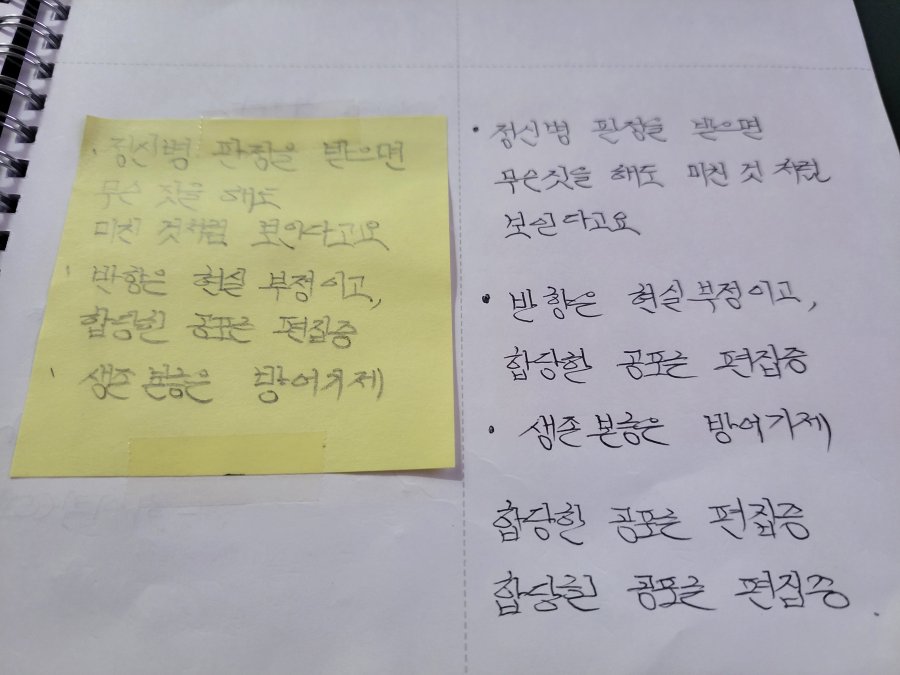 · 정신병 판정을 받으면
무슨 짓을 해도
미친 것처럼 보인다고요
· 반항은 현실 부정이고,
합당한 공포를 편집증
· 생존 본능은 방어기제
· 정신병 판정을 받으면
무슨짓을 해도 미친 것 처럼
보인다고요
· 반항은 현실부정이고,
합당한 공포를 편집증
· 생존본능은 방어기제
합당한 공포를 편집증
합당한 공포를 편집증.